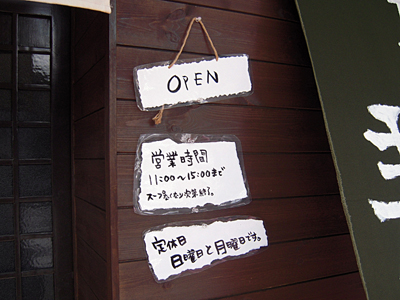 OPEN
営業時間
11:00～15:00まで
スープ無くなり次第終了。
定休日
日曜日と月曜日です。